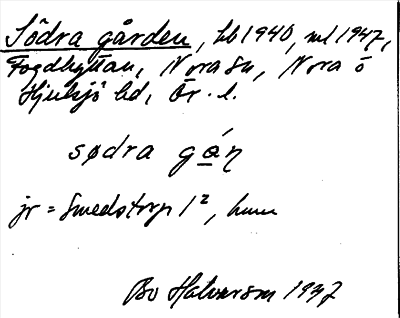 Södra gården, hb 1940, ml 1947,
Fogdhyttan, Nora sn, Nora o
Hjulsjö bd, Ör. l.
sødra gá̱ṇ
jr = Smedstorp 1², hmn
Bo Halvarson 1947